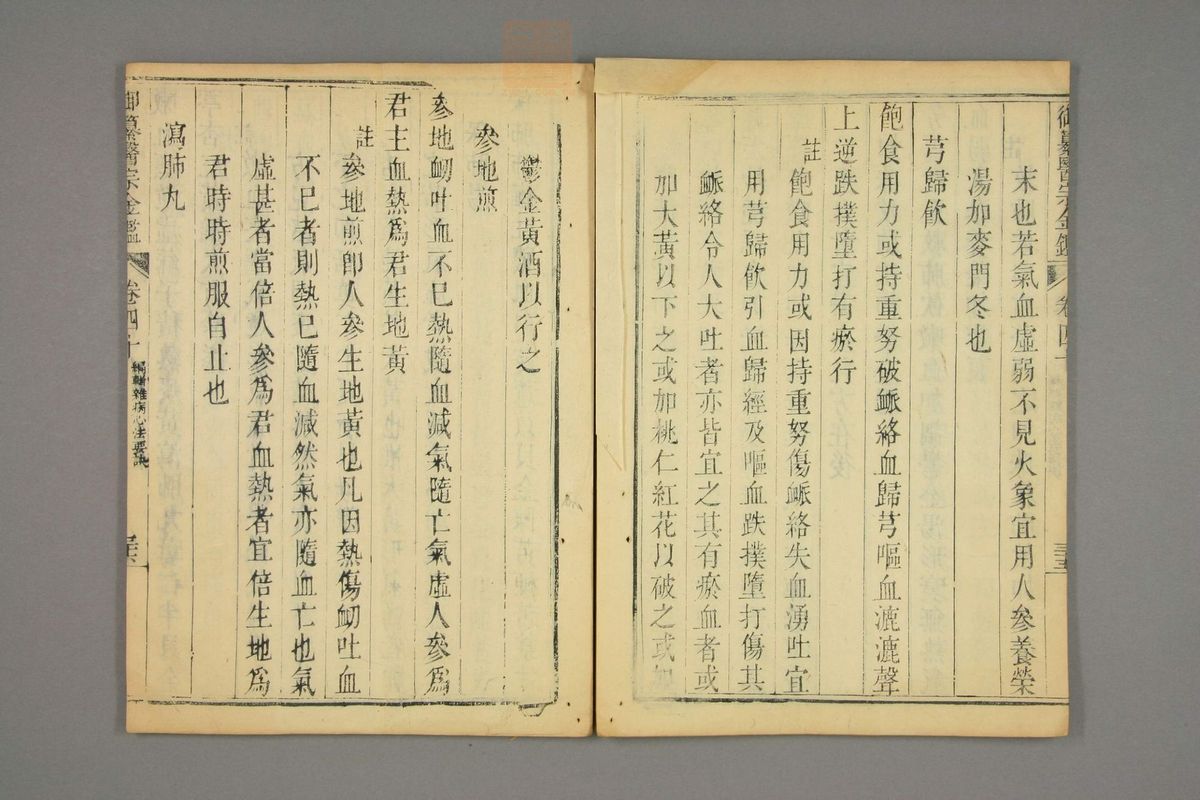 御纂醫宗金鑑 卷四十 三五
末也若氣血虛弱不見火象宜用人參養榮
湯加麥門冬也
芎歸飲
飽食用力或持重努破衇絡血歸芎嘔血漉漉聲
上逆跌撲墮打有瘀行
註 飽食用力或因持重努傷衇絡失血湧吐宜
用芎歸飲引血歸經及嘔血跌撲墮打傷其
衇絡令人大吐者亦皆宜之其有瘀血者或
加大黃以下之或加桃仁紅花以破之或加
鬱金黃酒以行之
參地煎
參地衂吐血不已熱隨血減氣隨亡氣虛人參爲
君主血熱爲君生地黃
註 參地煎卽人參生地黃也凡因熱傷衂吐血
不已者則熱已隨血減然氣亦隨血亡也氣
虛甚者當倍人參爲君血熱者宜倍生地爲
君時時煎服自止也
瀉肺丸
御纂醫宗金鑑 卷四十 編輯雜病心法要訣 三六